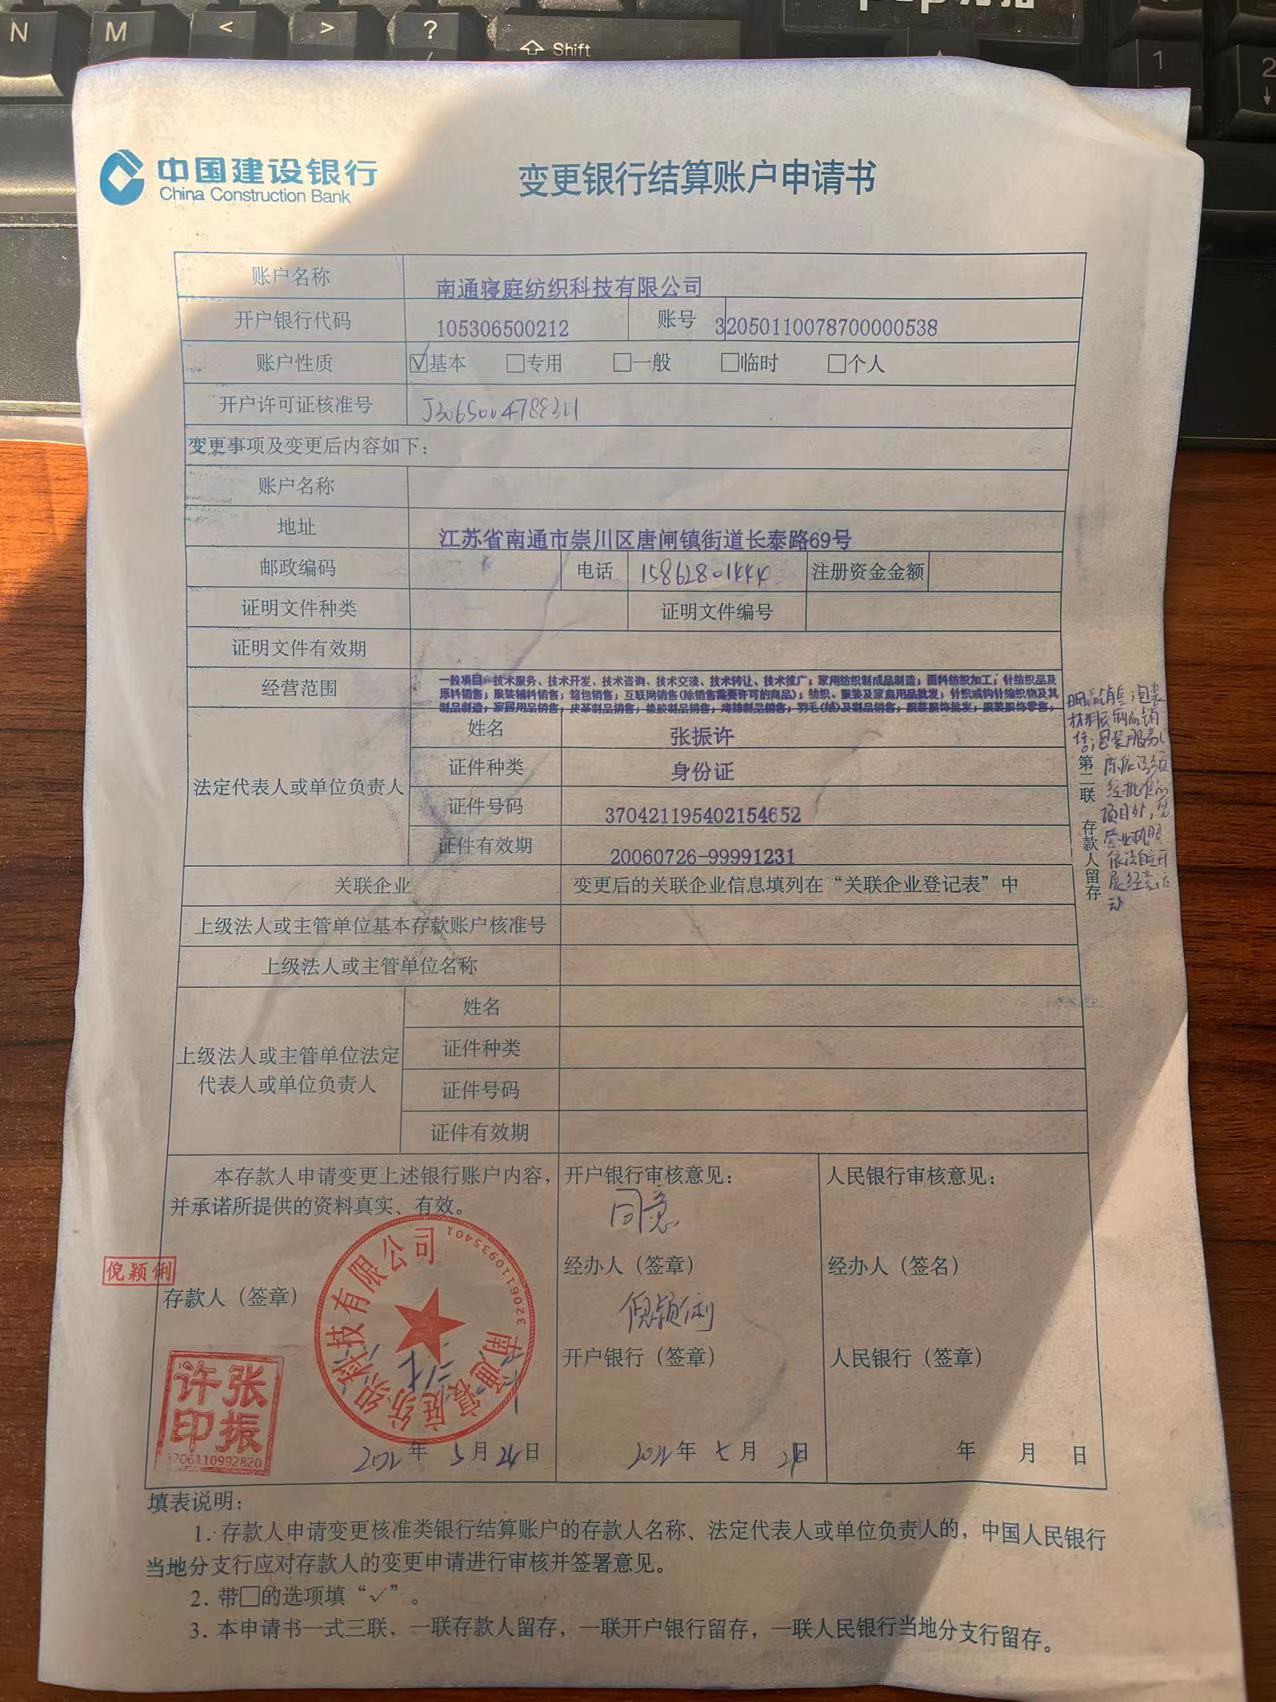 N M < > ? Shift
1 2
中国建设银行
China Construction Bank
变更银行结算账户申请书
账户名称 南通寝庭纺织科技有限公司
开户银行代码 105306500212 账号 32050110078700000538
账户性质 ☑基本 □专用 □一般 □临时 □个人
开户许可证核准号
变更事项及变更后内容如下：
账户名称
地址 江苏省南通市崇川区唐闸镇街道长泰路69号
邮政编码 电话 15862801444 注册资金金额
证明文件种类 证明文件编号
证明文件有效期
经营范围 一般项目：技术服务、技术开发、技术咨询、技术交流、技术转让、技术推广；家用纺织制成品制造；面料纺织加工；针纺织品及
原料销售；服装辅料销售；箱包销售；互联网销售(除销售需要许可的商品)；纺织、服装及家庭用品批发；针织或钩针编织物及其
制品制造；家居用品销售；皮革制品销售；橡胶制品销售；海绵制品销售；羽毛(绒)及制品销售；服装服饰批发；服装服饰零售；
销售；包装
材料及制品销
售；包装服务(
除依法须
经批准的
项目外，凭
营业执照
依法自主开
展经营活
动
第二联 存款人留存
法定代表人或单位负责人
姓名 张振许
证件种类 身份证
证件号码 370421195402154652
证件有效期 20060726-99991231
关联企业 变更后的关联企业信息填列在“关联企业登记表”中
上级法人或主管单位基本存款账户核准号
上级法人或主管单位名称
上级法人或主管单位法定
代表人或单位负责人
姓名
证件种类
证件号码
证件有效期
本存款人申请变更上述银行账户内容，
并承诺所提供的资料真实、有效。
倪颖俐
存款人（签章）
南通寝庭纺织科技有限公司
3206110935401
张振许印
3206110992820
年 5月24日
开户银行审核意见：
同意
经办人（签章）
倪颖俐
开户银行（签章）
年 月 日
人民银行审核意见：
经办人（签名）
人民银行（签章）
年 月 日
填表说明：
1. 存款人申请变更核准类银行结算账户的存款人名称、法定代表人或单位负责人的，中国人民银行
当地分支行应对存款人的变更申请进行审核并签署意见。
2. 带□的选项填“✓”。
3. 本申请书一式三联，一联存款人留存，一联开户银行留存，一联人民银行当地分支行留存。